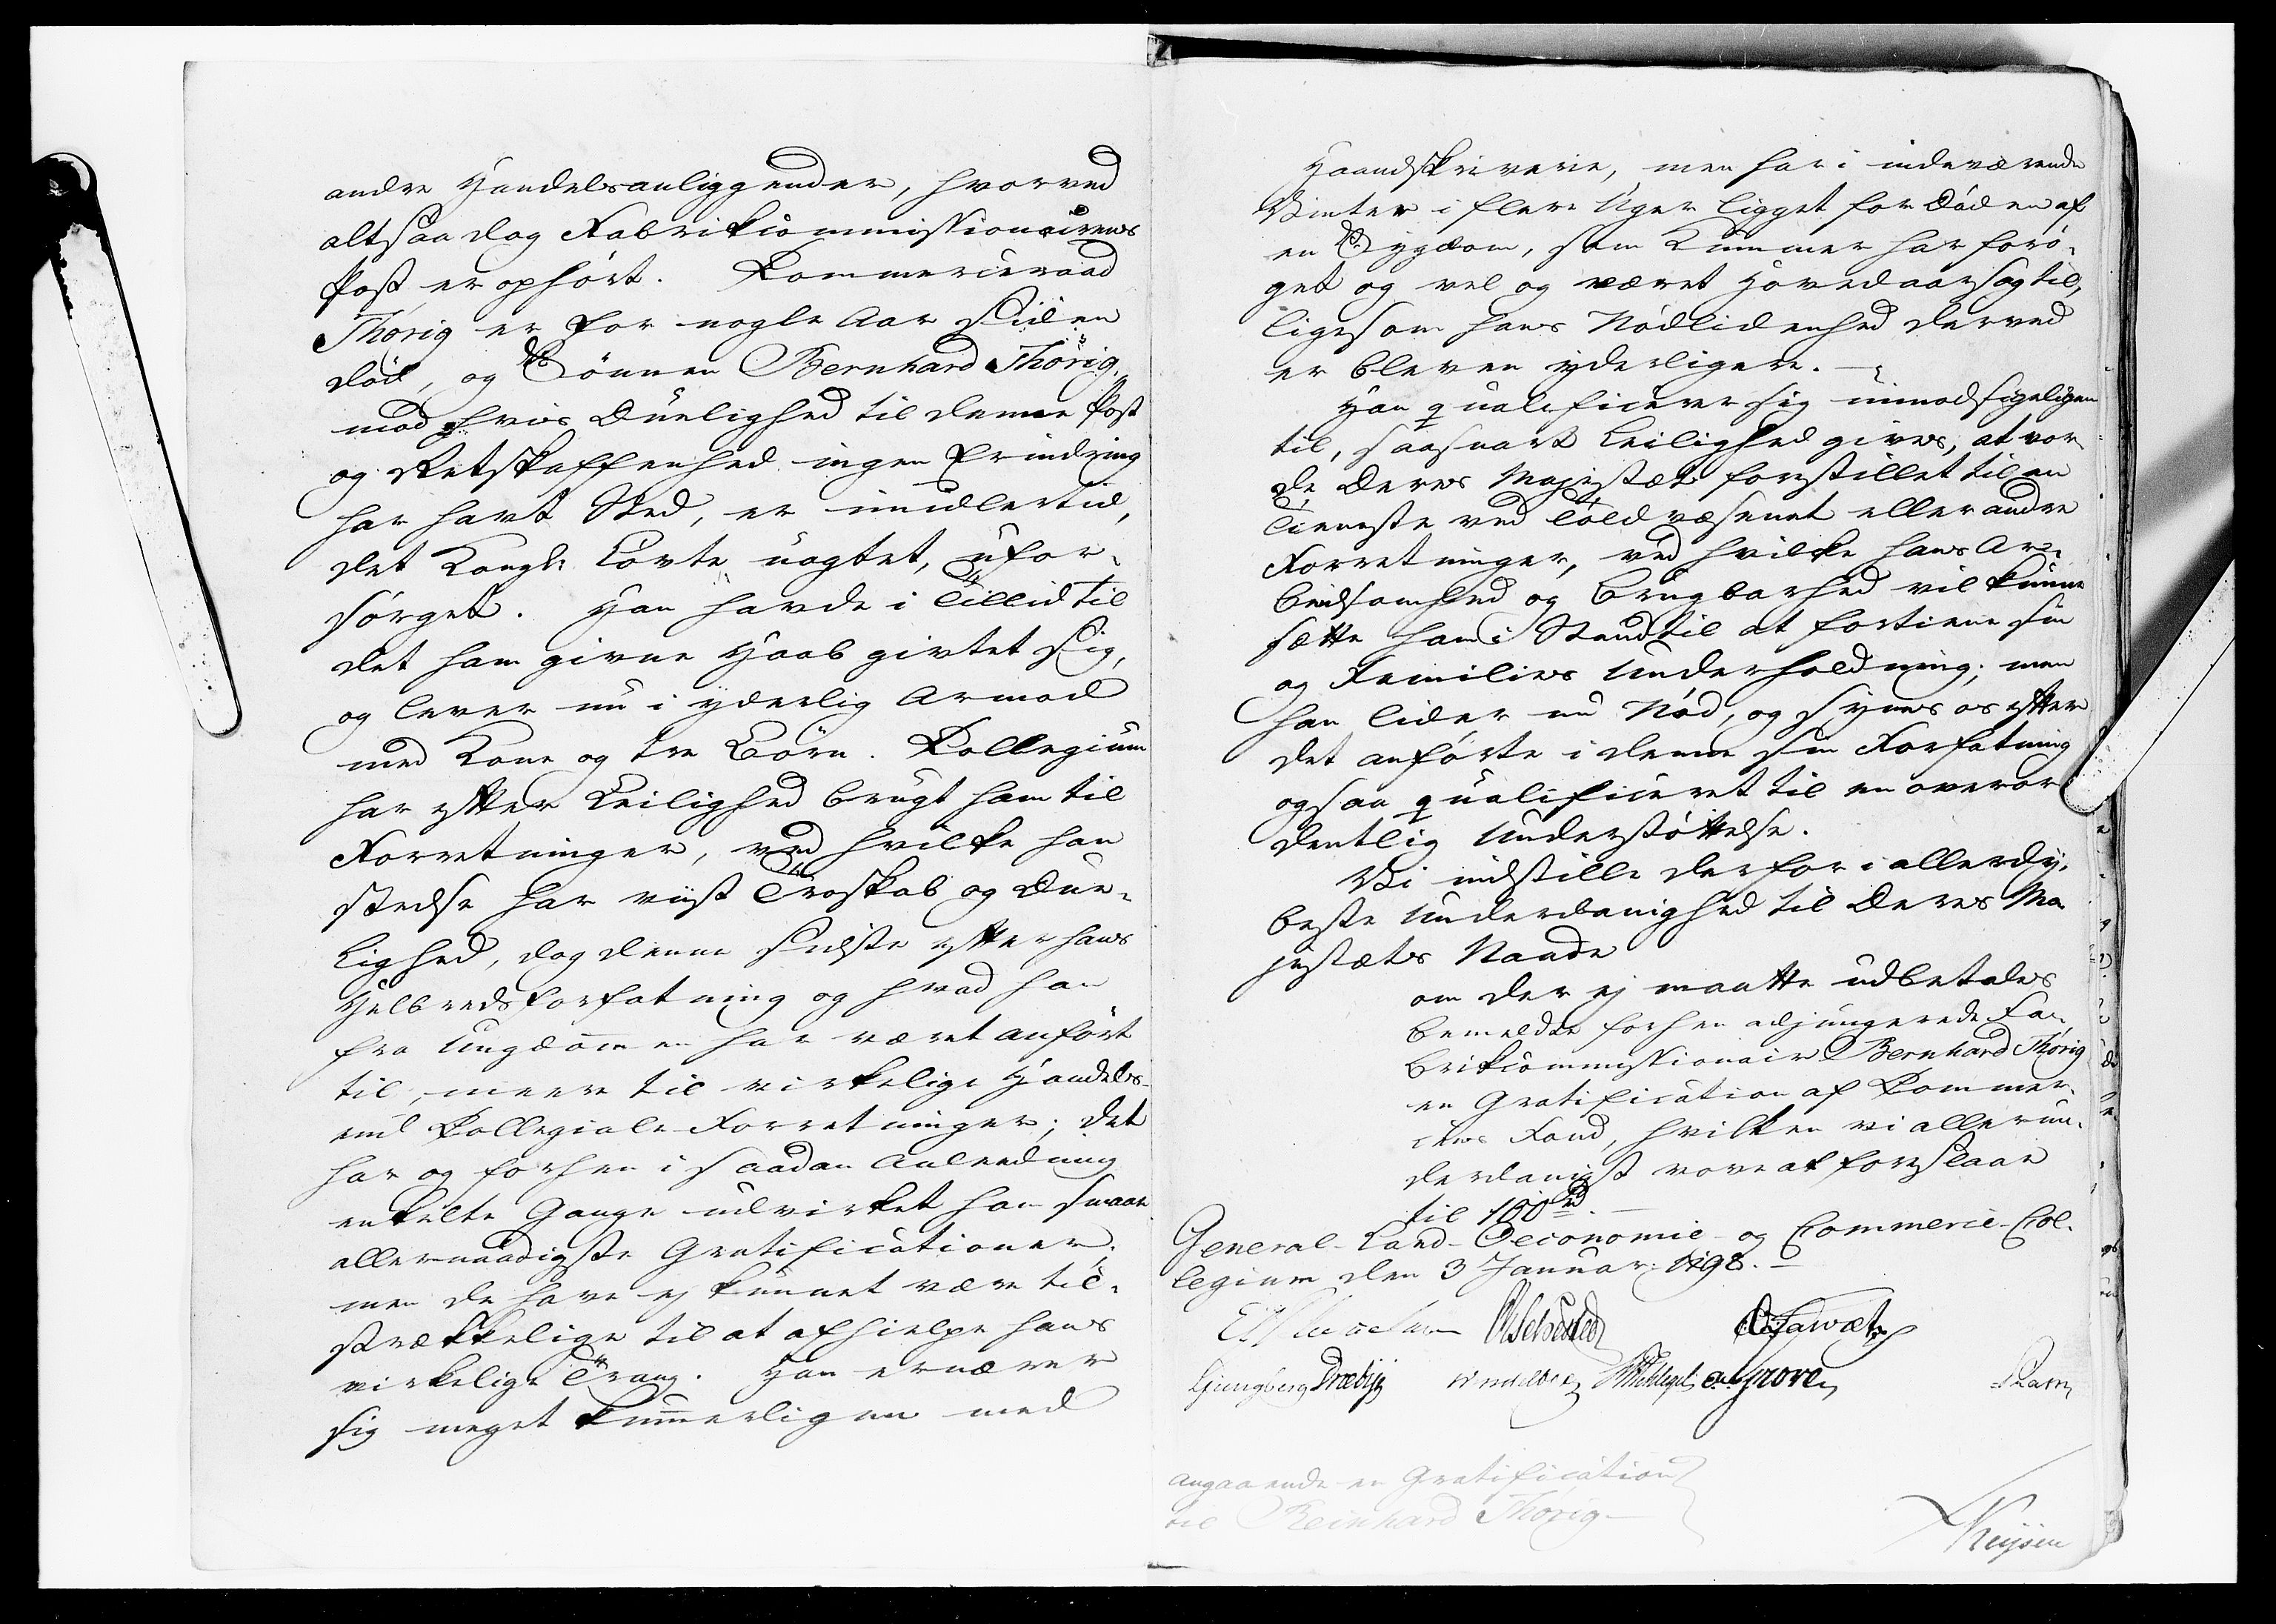 andre Handelsanliggender, hvorved
altsaa dog Fabrikkommissionairens
Post er ophört. Kommerceraad
Thörig er for nogle Aar siden
död, og Sönnen Bernhard Thörig,
mod hvis Duelighed til denne Post
og Retskaffenhed ingen Erindring
har havt Sted, er imidlertid,
det Kongl. Lövte uagtet, ufor-
sörget. Han havde i Tillid til
det ham givne Haab givtet sig,
og lever nu i yderlig Armod
med Kone og tre Börn. Kollegium
har efter Leilighed brugt ham til
Forretninger, ved hvilke han
stedse har viist Troskab og Due-
lighed, dog denne sidste efter hans
Helbredsforfatning og hvad han
fra Ungdommen har været anfört
til, meere til virkelige Handels-
end Kollegiale-Forretninger; det
har og forhen i saadan Anledning
enkelte Gange udvirket ham smaae
allernaadigste Gratificationer,
men de have ej kunnet være til-
strækkelige til at afhielpe hans
virkelige Trang. Han ernærer
sig meget kummerligen med
Haandskriverie, men har i indeværende
Vinter i flere Uger ligget for Döden af
en Sygdom, som Kummer har forö-
get og vel og været Hovedaarsag til,
ligesom hans Nödlidenhed derved
er bleven yderligere. —
Han qualificerer sig uimodsigeligen
til, saasnart Leilighed gives, at vor-
de Deres Majestæt forestillet til en
Tieneste ved Toldvæsenet eller andre
Forretninger, ved hvilke hans Ar-
beidsomhed og Brugbarhed vil kunne
sætte ham i Stand til at fortiene sin
og Families Underholdning; men
han lider nu Nöd, og synes os efter
det anförte i denne sin Forfatning
ogsaa qualificeret til en overor-
dentlig Understöttelse.
Vi indstille derfor i allerdy-
beste Underdanighed til Deres Ma-
jestæts Naade
om der ej maatte udbetales
bemeldte forhen adjungerede Fa-
brikkommissionair Bernhard Thörig
en Gratification af Kommer-
cens Fond, hvilken vi allerun-
derdanigst vove at foreslaae
til 100 rd. —
General-Land-Oeconomie- og Commerce-Col-
legium den 3 Januar 1798. —
Sehested
Ljungberg
Schlegel
Grove
Pram
angaaende en Gratification
til Reinhard Thörig —